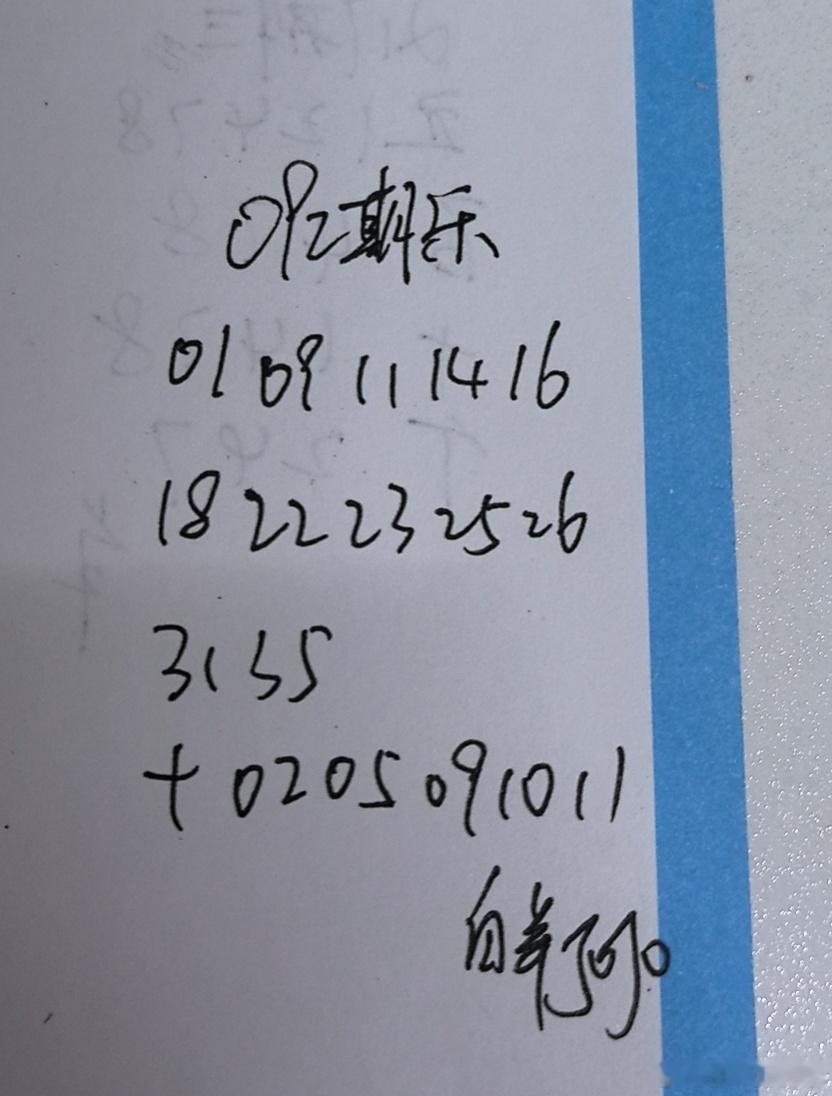 092期乐
01 09 11 14 16
18 22 23 25 26
31 35
+ 02 05 09 10 11